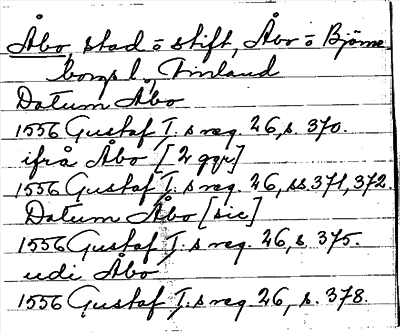 Åbo, stad o stift, Åbo o Björne-
borgs l., Finland
Datum Åbo
1556 Gustaf I. s reg. 26, s. 370.
ifrå Åbo [2 ggr]
1556 Gustaf I. s reg. 26, ss. 371, 372.
Datum Åbo [sic]
1556 Gustaf I. s reg. 26, s. 375.
udi Åbo
1556 Gustaf I. s reg. 26, s. 378.